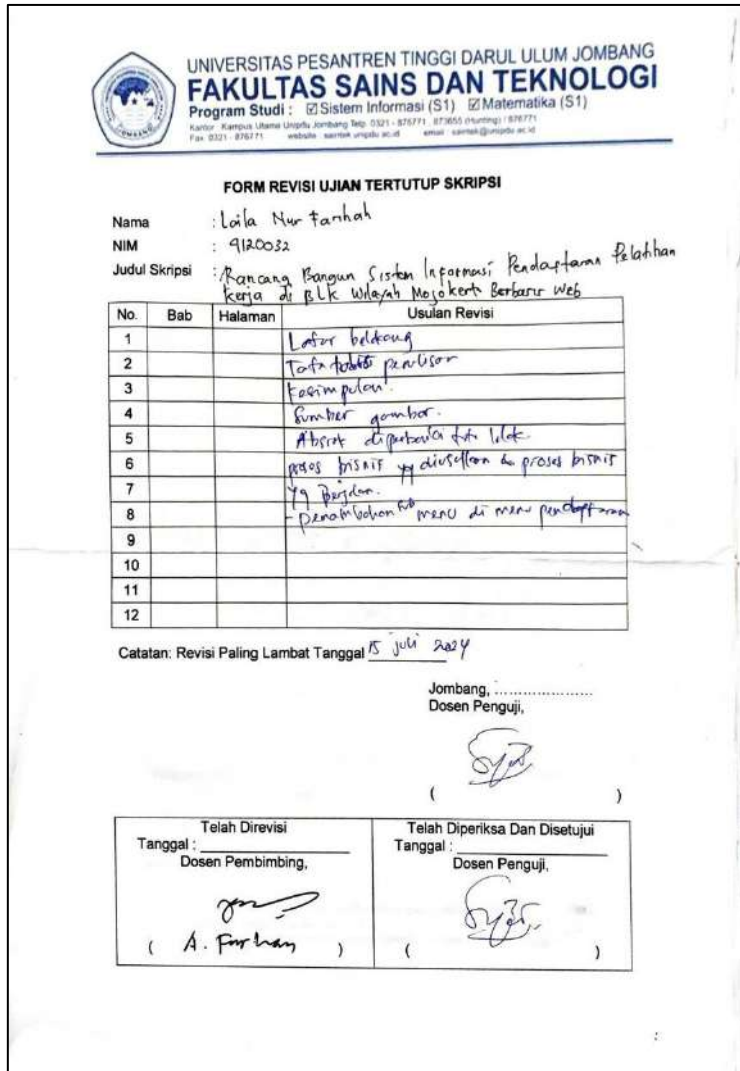 UNIVERSITAS PESANTREN TINGGI DARUL ULUM JOMBANG
FAKULTAS SAINS DAN TEKNOLOGI
Program Studi : ☑ Sistem Informasi (S1) ☑ Matematika (S1)
Kantor : Kampus Utama Unipdu Jombang Telp. 0321 - 876771 , 873655 (Hunting) / 876771
Fax. 0321 - 876771 website : saintek.unipdu.ac.id email : saintek@unipdu.ac.id
JOMBANG
FORM REVISI UJIAN TERTUTUP SKRIPSI
Nama : Laila Nur Farihah
NIM : 9120032
Judul Skripsi : Rancang Bangun Sistem Informasi Pendaftaran Pelatihan
Kerja di BLK Wilayah Mojokerto Berbasis Web
No. Bab Halaman Usulan Revisi
1 Latar belakang
2 Tata penulisan
3 Kesimpulan.
4 Sumber gambar.
5 Absrak diperbaiki
6 proses bisnis yg diusulkan & proses bisnis
7 yg Berjalan.
8 - penambahan sub menu di menu pendaftaran
9
10
11
12
Catatan: Revisi Paling Lambat Tanggal 15 juli 2024
Jombang, ......................
Dosen Penguji,
( )
Telah Direvisi
Tanggal :
Dosen Pembimbing,
( A. Farhan )
Telah Diperiksa Dan Disetujui
Tanggal :
Dosen Penguji,
( )